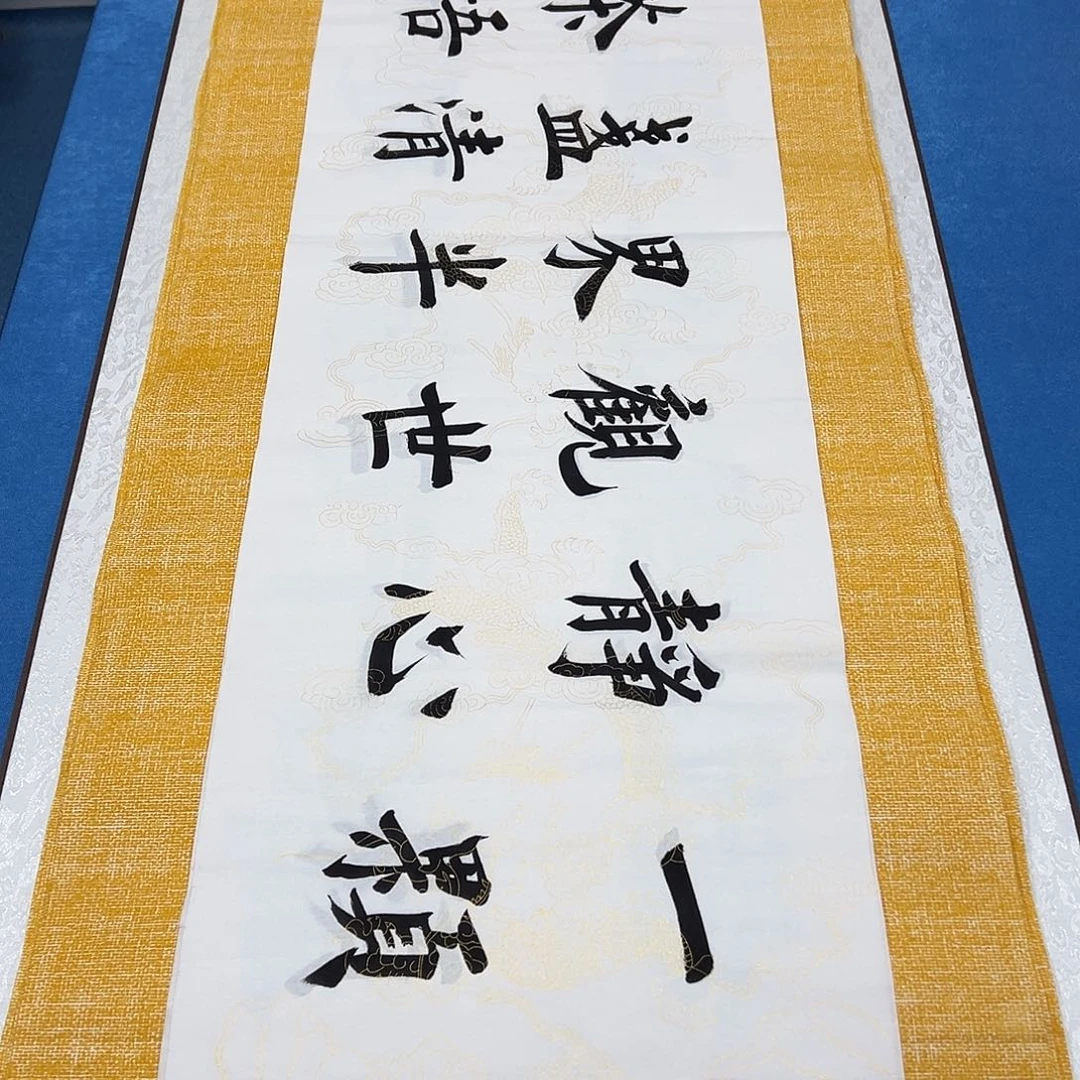 一顆
靜心
觀世
界半
盞清
茶悟